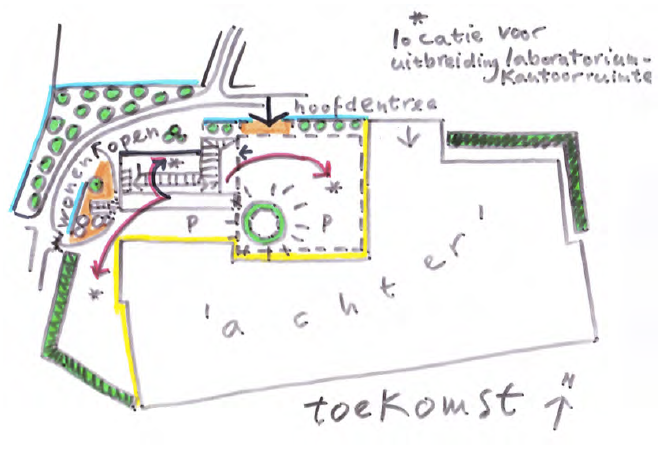 *
locatie voor
uitbreiding laboratorium-
kantoorruimte
hoofdentree
open
wonen
*
*
P
P
*
'achter'
toekomst
N